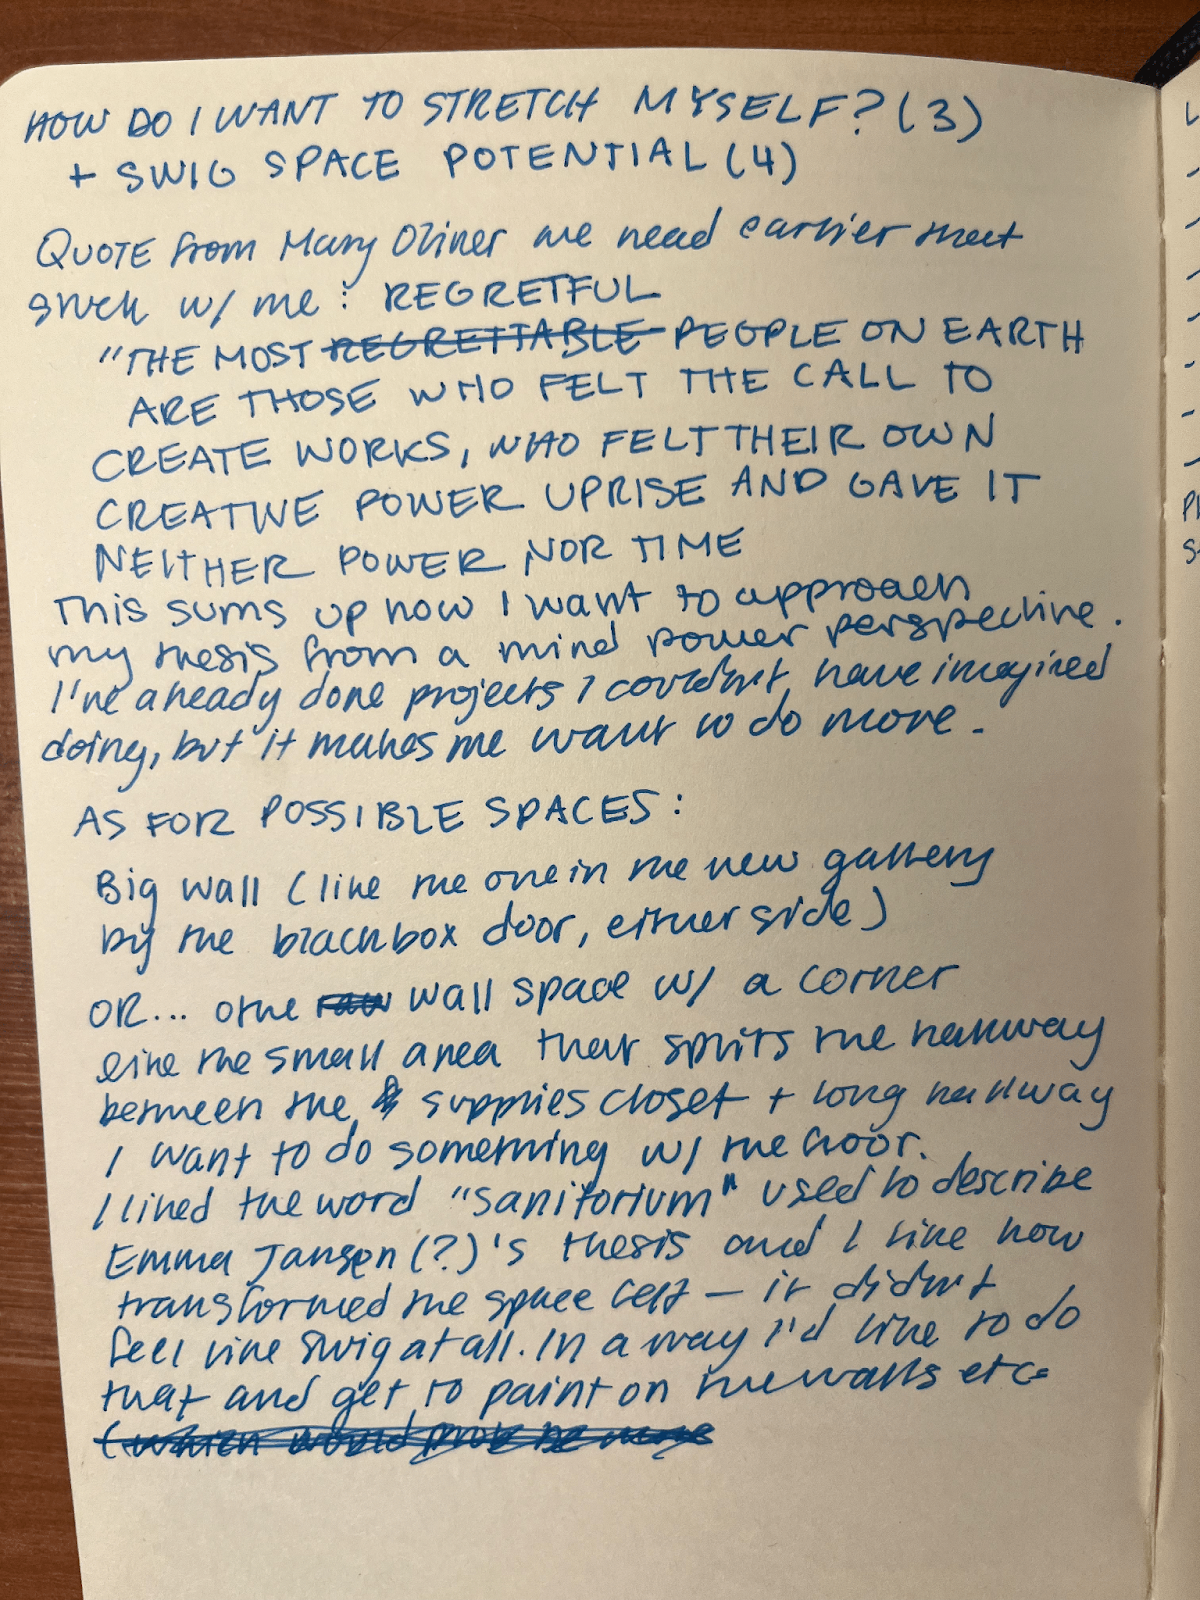 HOW DO I WANT TO STRETCH MYSELF? (3)
+ SWIG SPACE POTENTIAL (4)
QUOTE from Mary Oliver we read earlier that
stuck w/ me: REGRETFUL
"THE MOST REGRETTABLE PEOPLE ON EARTH
ARE THOSE WHO FELT THE CALL TO
CREATE WORKS, WHO FELT THEIR OWN
CREATIVE POWER UPRISE AND GAVE IT
NEITHER POWER NOR TIME
This sums up how I want to approach
my thesis from a mind power perspective.
I've already done projects I couldn't have imagined
doing, but it makes me want to do more.
AS FOR POSSIBLE SPACES:
Big wall (like the one in the new gallery
by the blackbox door, either side)
OR... othe raw wall space w/ a corner
like the small area that splits the hallway
between the supplies closet + long hallway
I want to do something w/ the floor.
I liked the word "sanitorium" used to describe
Emma Jansen(?)'s thesis and I like how
transformed the space felt — it didn't
feel like Swig at all. In a way I'd like to do
that and get to paint on the walls etc.
(which would prob be more